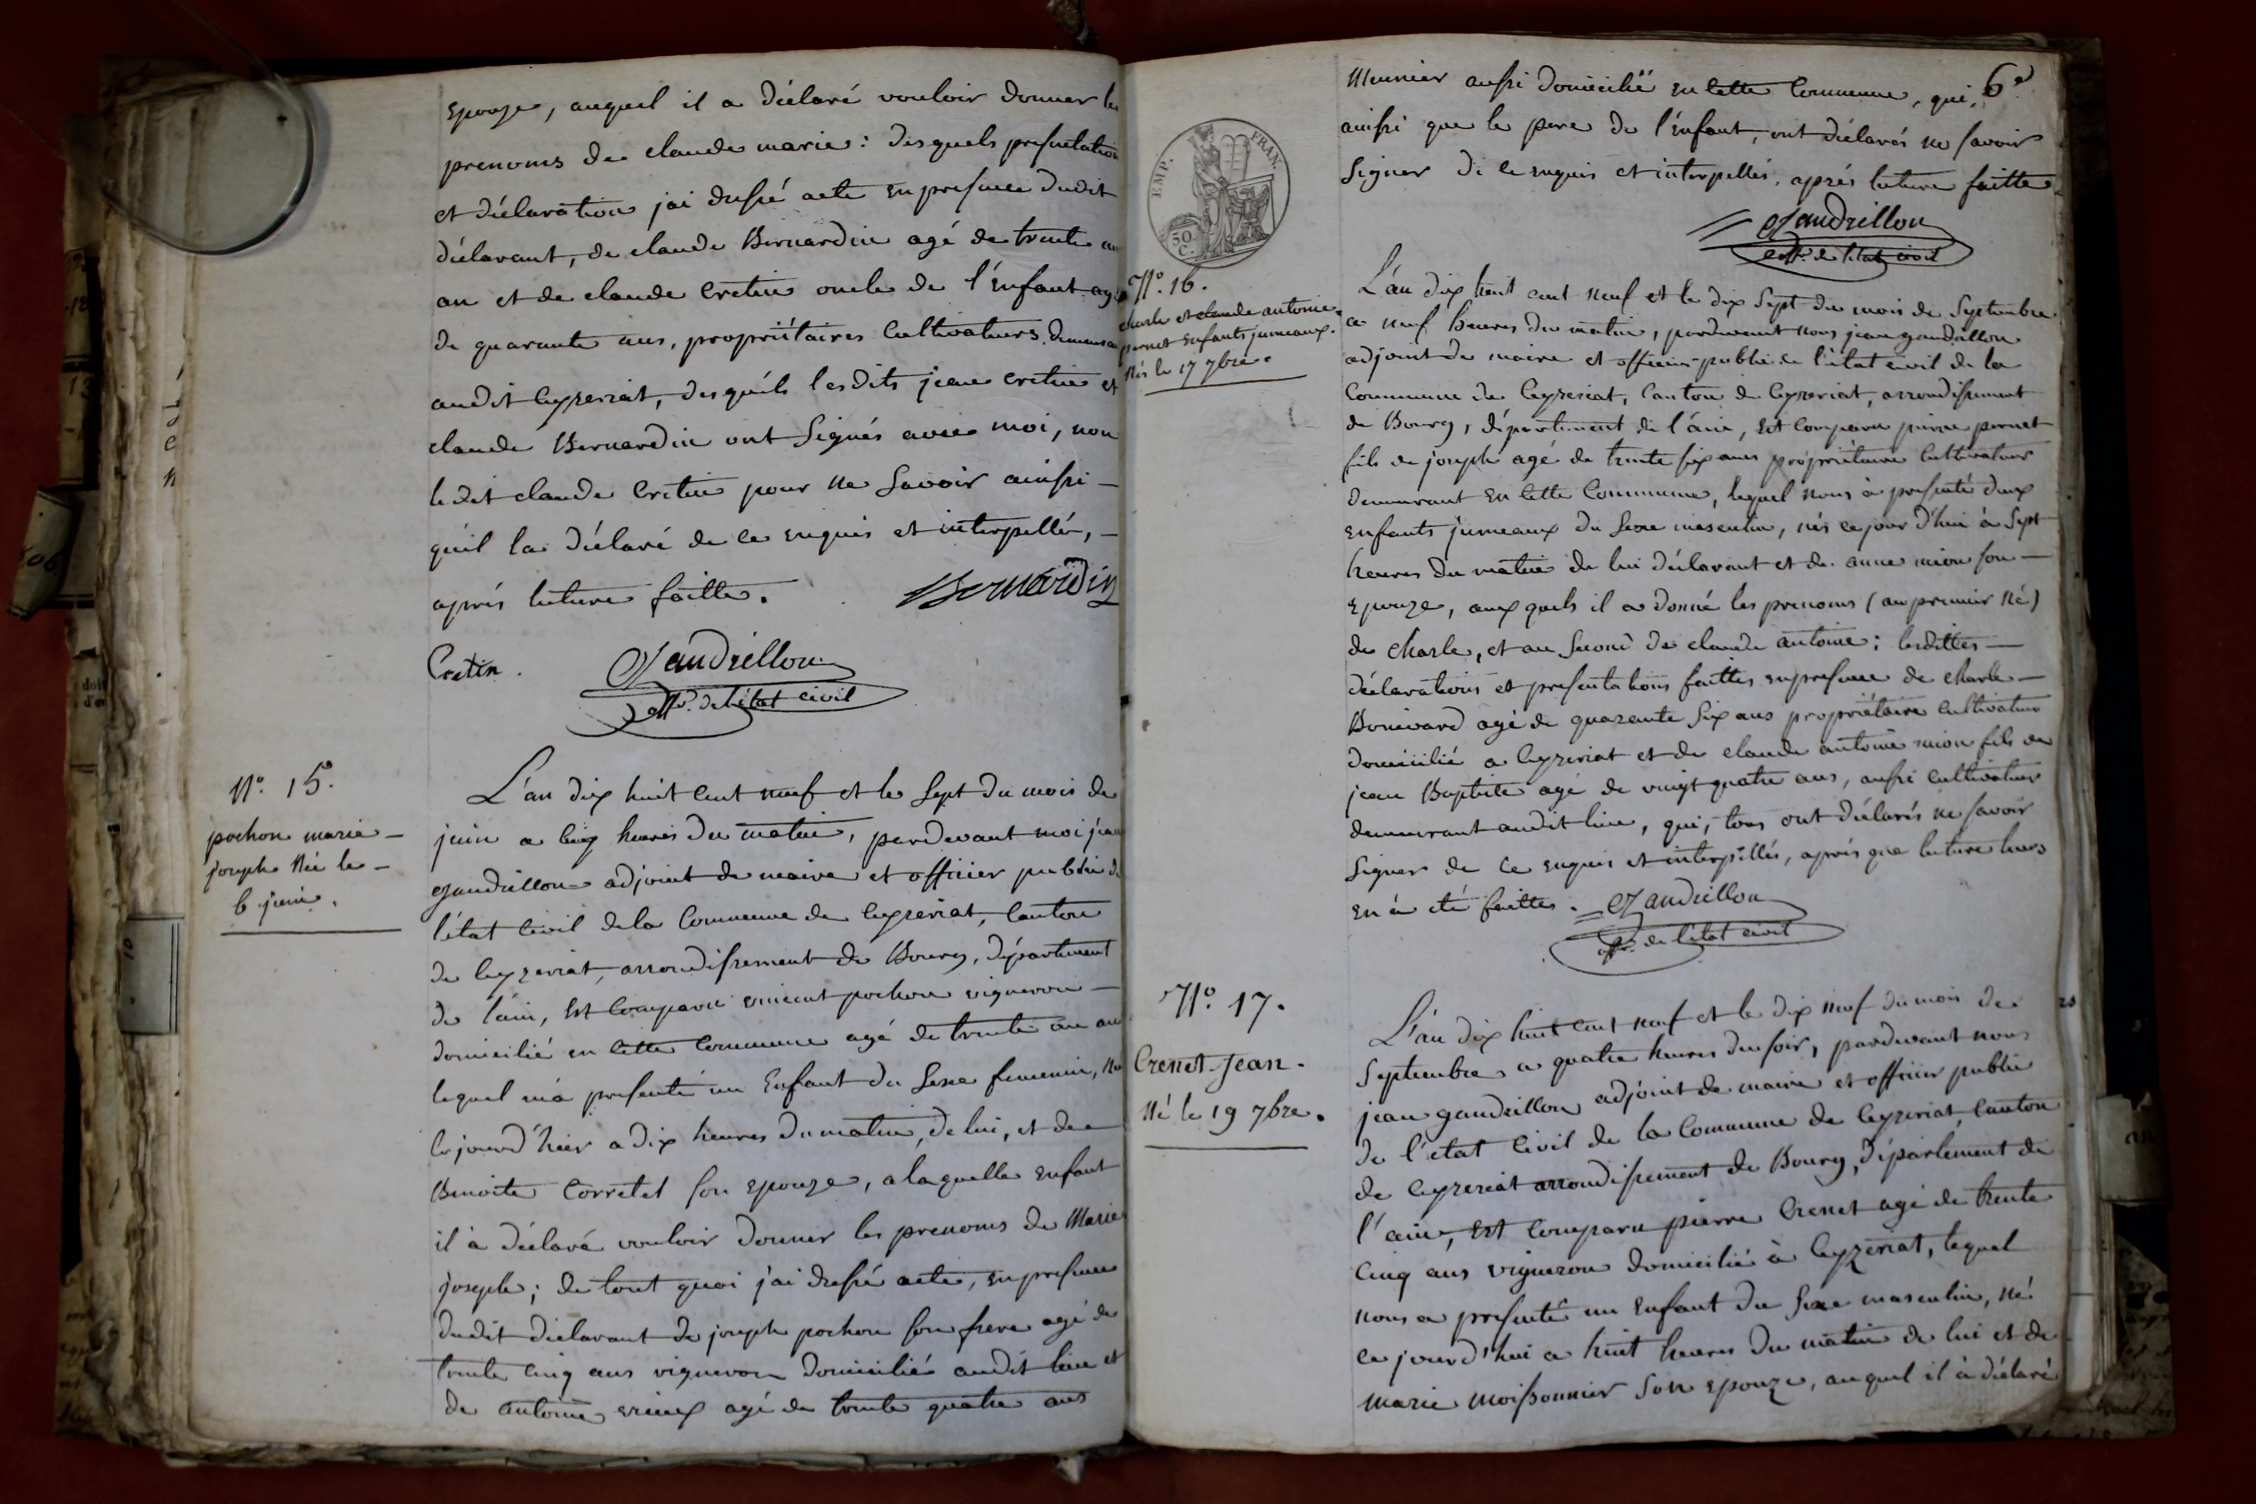 Epouze, auquel il a déclaré vouloir donner les
prenoms de claude marie: desquels presentation
et déclaration jai dressé acte en presence dudit
déclarant, de claude Bernardin agé de trente un
an et de claude Cretin oncle de l'Enfant agé
de quarante ans, propriétaires Cultivateurs demeurant
audit Ceyzeriat, desquels lesdits jean cretin et
claude Bernardin ont Signés avec moi, non
ledit claude Cretin pour ne Savoir ainssi —
quil la déclaré de ce enquis et interpellé, —
aprés lecture faitte. Bernardin
Cretin. Gaudrillon
offr. de l'état civil
N°. 15.
pochon marie —
joseph Née le —
6 juin.
L'an dix huit cent neuf et le Sept du mois de
juin a cinq heures du matin, pardevant moi jean
gaudrillon adjoint de maire et officier public de
l'état Civil de la Commune de Ceyzeriat, Canton
de Ceyzeriat, arrondissement de Bourg, département
de l'ain, Est Comparu vincent pochon vigneron —
domicilié en cette Commune agé de trente un an
lequel m'a presenté un Enfant du Sexe femenin, Née
le jourd'hier a dix heures du matin, de lui, et de
Benoite Corretel son Epouze, a laquelle enfant
il à déclaré vouloir donner les prenoms de Marie
joseph; de tout quoi j'ai dressé acte, en presence
dudit déclarant de joseph pochon son frere agé de
trente cinq ans vigneron domicilié audit lieu et
de antoine vieux agé de trente quatre ans
6e
Meunier aussi domicilié en cette Commune, qui,
ainssi que le pere de l'Enfant, ont déclarés ne savoir
Signer de ce enquis et interpellés, aprés lecture faitte.
Gaudrillon
offr. de l'état civil
EMP. FRAN.
50
C.
N°. 16.
charle et claude antoine
pernet Enfants jumeaux.
Nés le 17 7bre.
L'an dix huit cent neuf et le dix Sept du mois de Septembre
a neuf heures du matin, pardevant nous jean gaudrillon
adjoint de maire et officier public de l'état civil de la
Commune de Ceyzeriat, Canton de Ceyzeriat, arrondissement
de Bourg, département de l'ain, Est Comparu pierre pernet
fils de joseph agé de trente six ans propriétaire Cultivateur
demeurant en cette Commune, lequel nous à presenté deux
enfants jumeaux du Sexe masculin, nés ce jour d'hui à Sept
heures du matin de lui déclarant et de anne mion son —
Epouze, aux quels il a donné les prenoms (au premier Né)
de charle, et au Second de claude antoine; lesdittes —
déclarations et presentations faittes en presence de charle —
Bonivard agé de quarante Six ans propriétaire Cultivateur
domicilié a Ceyzeriat et de claude antoine mion fils de
jean Baptiste agé de vingt quatre ans, aussi Cultivateur
demeurant audit lieu, qui, tous ont déclarés ne savoir
Signer de ce enquis et interpellés, aprés que lecture leurs
en à été faitte. Gaudrillon
offr. de l'état civil
N°. 17.
Crenet Jean.
Né le 19 7bre.
L'an dix huit cent neuf et le dix neuf du mois de
Septembre a quatre heures du soir, pardevant nous
jean gaudrillon adjoint de maire et officier public
de l'état Civil de la Commune de Ceyzeriat, Canton
de Ceyzeriat arrondissement de Bourg, département de
l'ain, Est Comparu pierre Crenet agé de trente
Cinq ans vigneron domicilié à Ceyzeriat, lequel
nous a presenté un Enfant du Sexe masculin, né
ce jourd'hui a huit heures du matin de lui et de
marie moissonnier Son Epouze, auquel il à déclaré